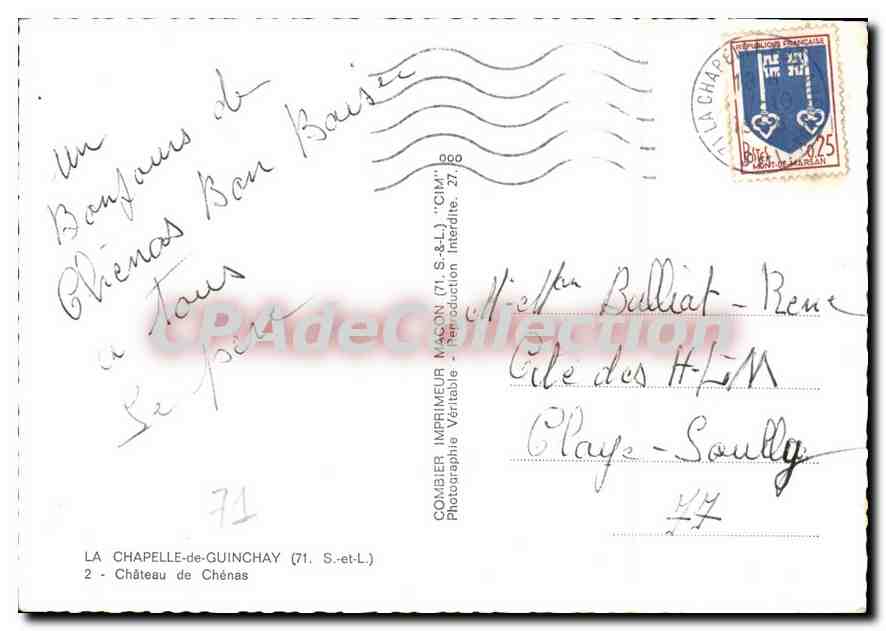 un
Bonjours de
Chénas Bon Baiser
a tous
Le père
71
LA CHAPELLE-de-GUINCHAY (71. S.-et-L.)
2 - Château de Chénas
COMBIER IMPRIMEUR MACON (71. S.-&-L.) "CIM"
Photographie Véritable - Reproduction Interdite. 27.
000
71 LA CHAPE
RÉPUBLIQUE FRANÇAISE
0,25
MONT-DE-MARSAN
M-Mm Bulliat-Rene
Cité des H-L-M
Claye-Souilly
77
CPAdeCollection